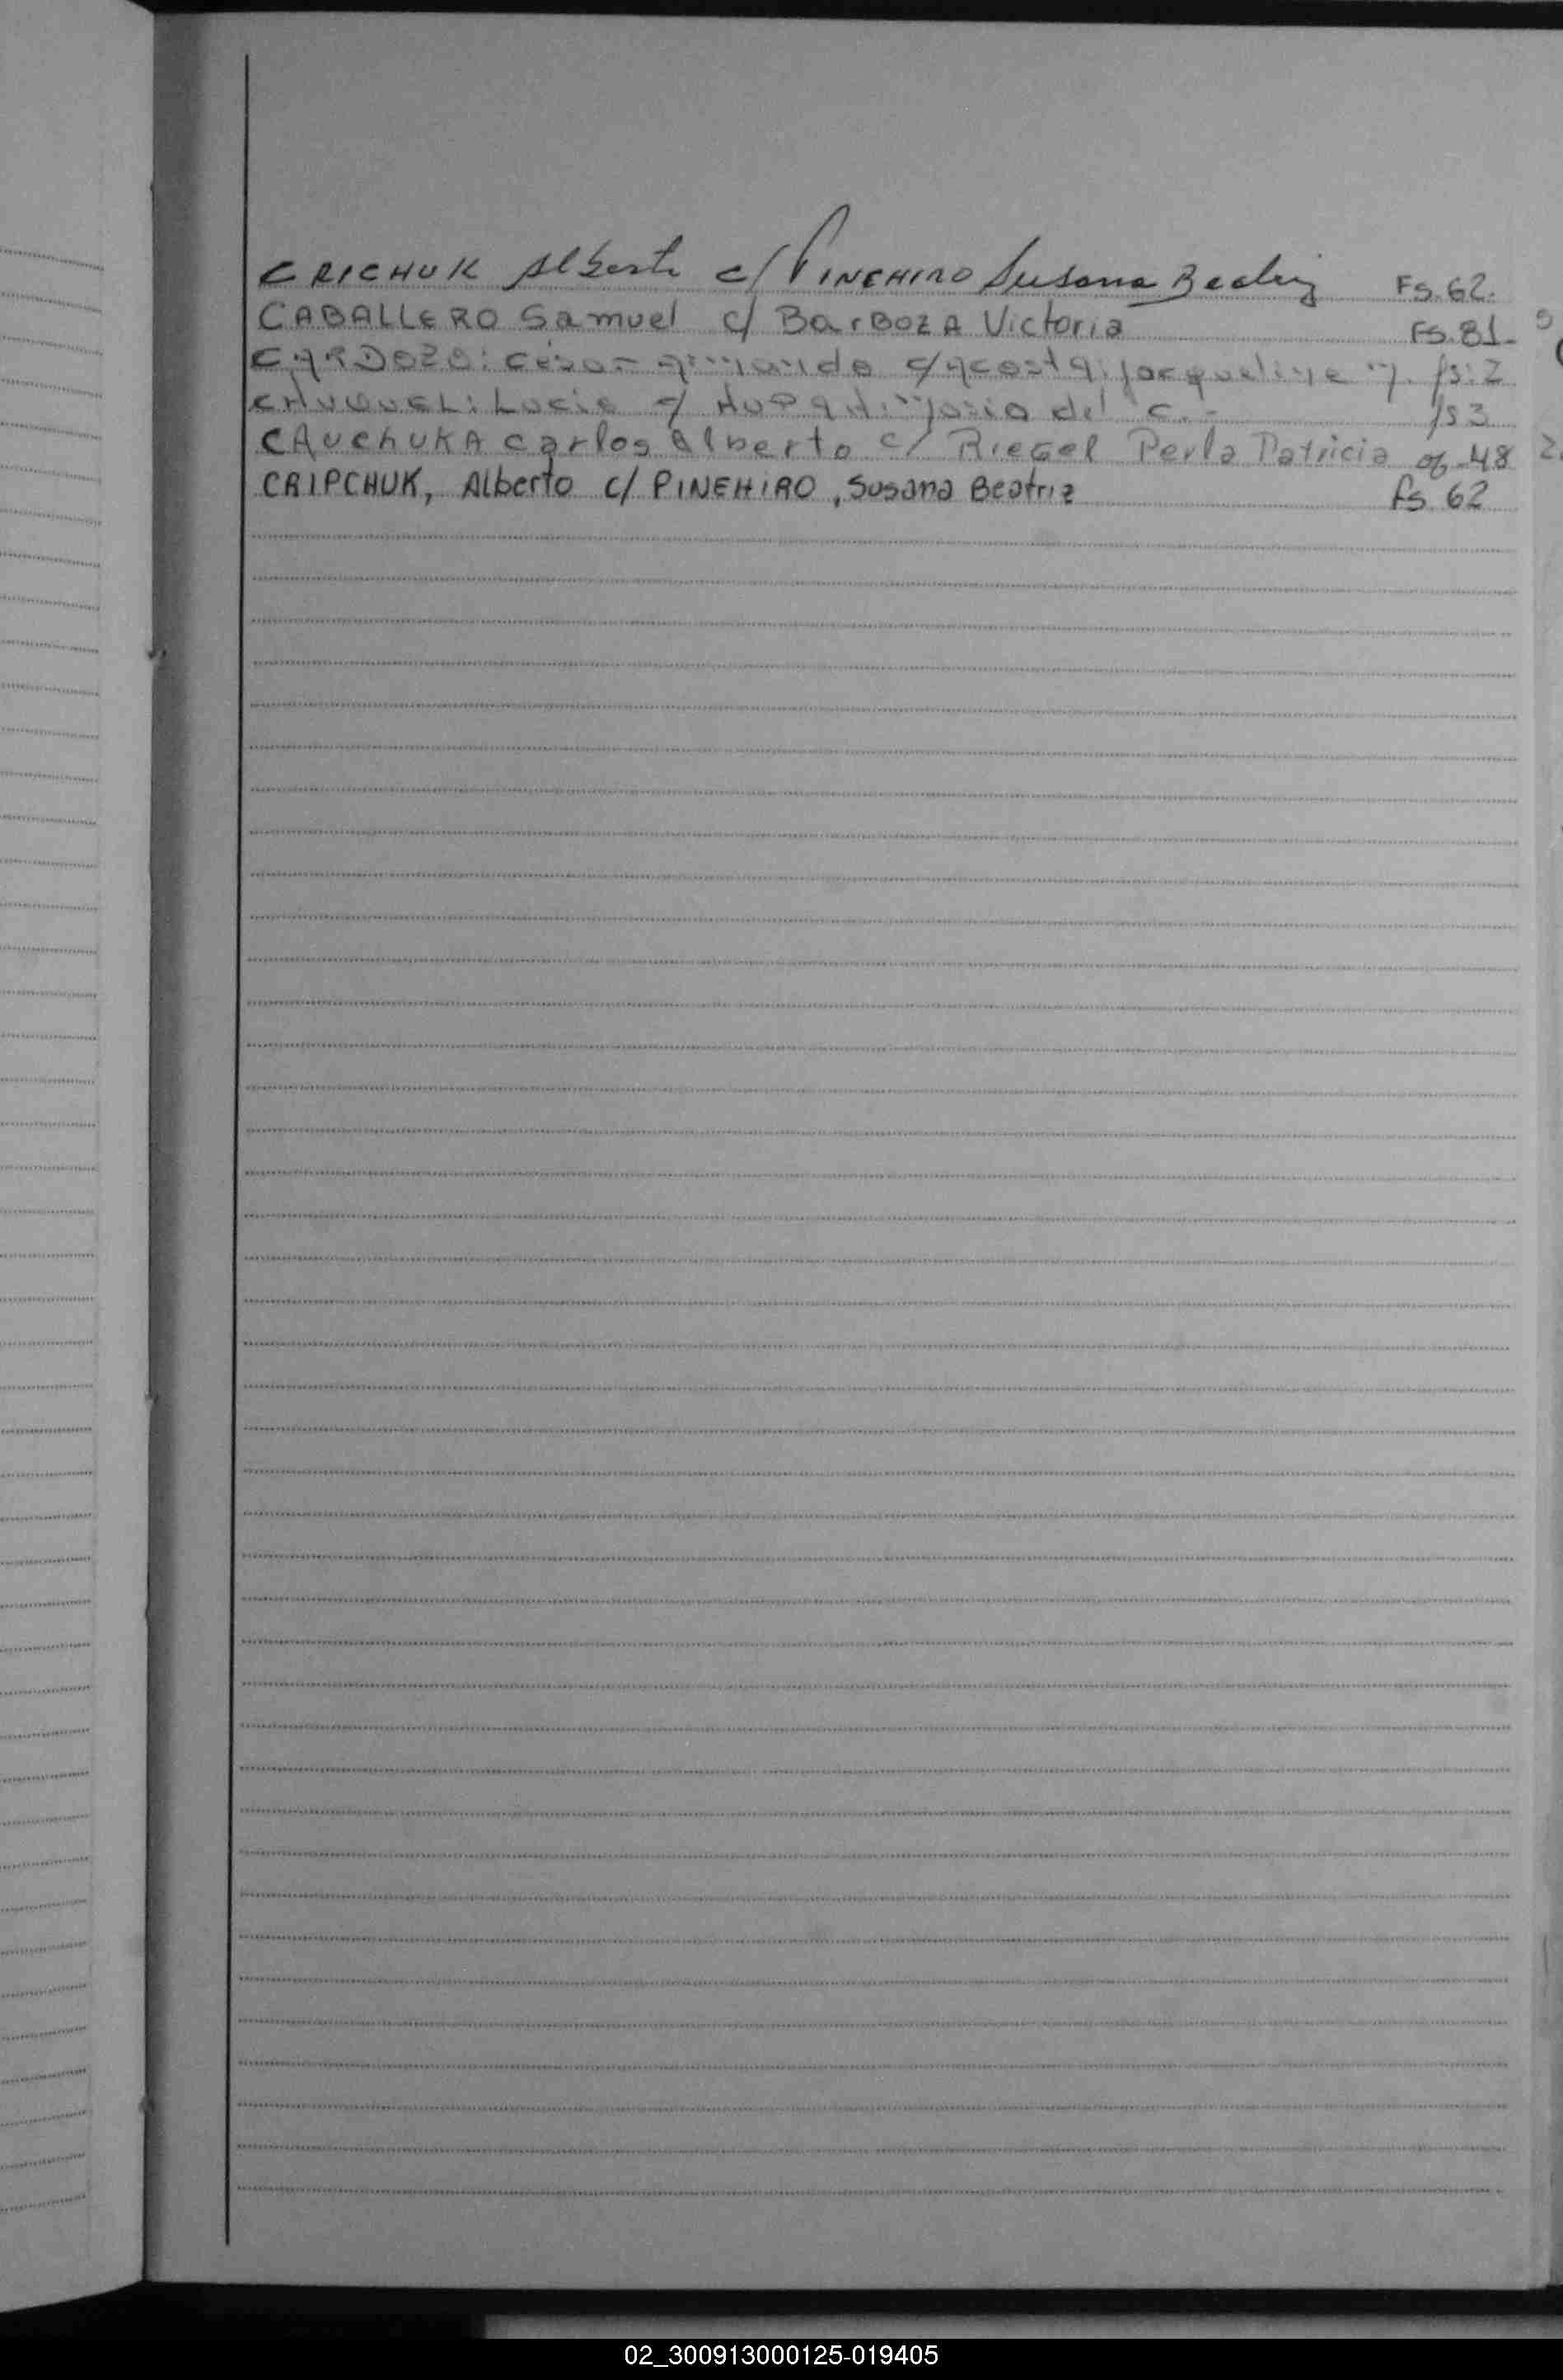 CRICHUK Alberto c/ PINEHIRO Susana Beatriz Fs. 62.
CABALLERO Samuel c/ BarBozA Victoria Fs. 81-
CARDOZO: César Armando c/ Acosta: Jacqueline M. fs: 2
Lucio c/ María del C.- fs 3
CAUchUKA carlos Alberto c/ RIEGel Perla Patricia 48
CRIPCHUK, Alberto c/ PINEHIRO, Susana Beatriz fs. 62
02_300913000125-019405